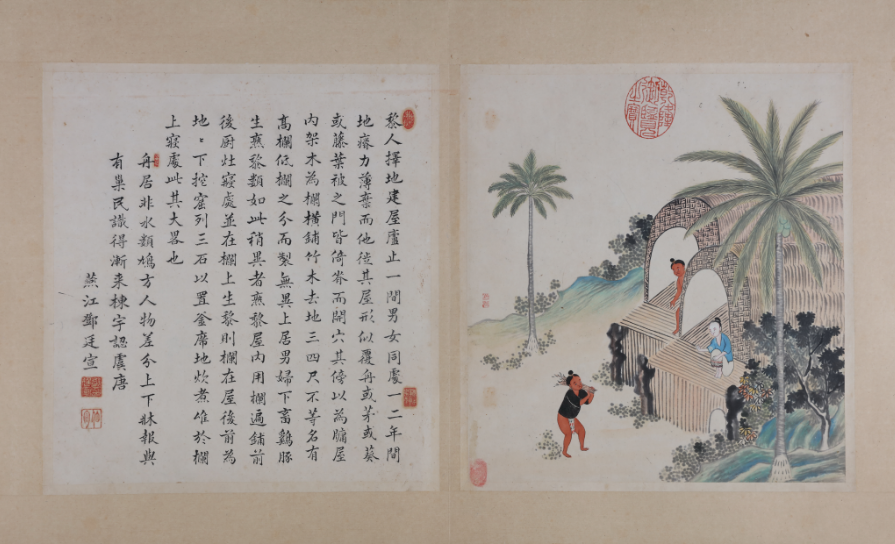 黎人擇地建屋廬止一間男女同處一二年間
地瘠力薄棄而他徙其屋形似覆舟或茅或葵
或藤葉被之門皆倚脊而開穴其傍以為牖屋
内架木為欄橫鋪竹木去地三四尺不等名有
高欄低欄之分而製無異上居男婦下畜鷄豚
生熟黎類如此稍異者熟黎屋内用欄遍鋪前
後厨灶寢處並在欄上生黎則欄在屋後前為
地〻下挖窟列三石以置釜席地炊煮惟於欄
上寢處此其大畧也
舟居非水類鳩方人物差分上下牀報與
有巢民識得漸來棟宇認虞唐
燕江鄧廷宣